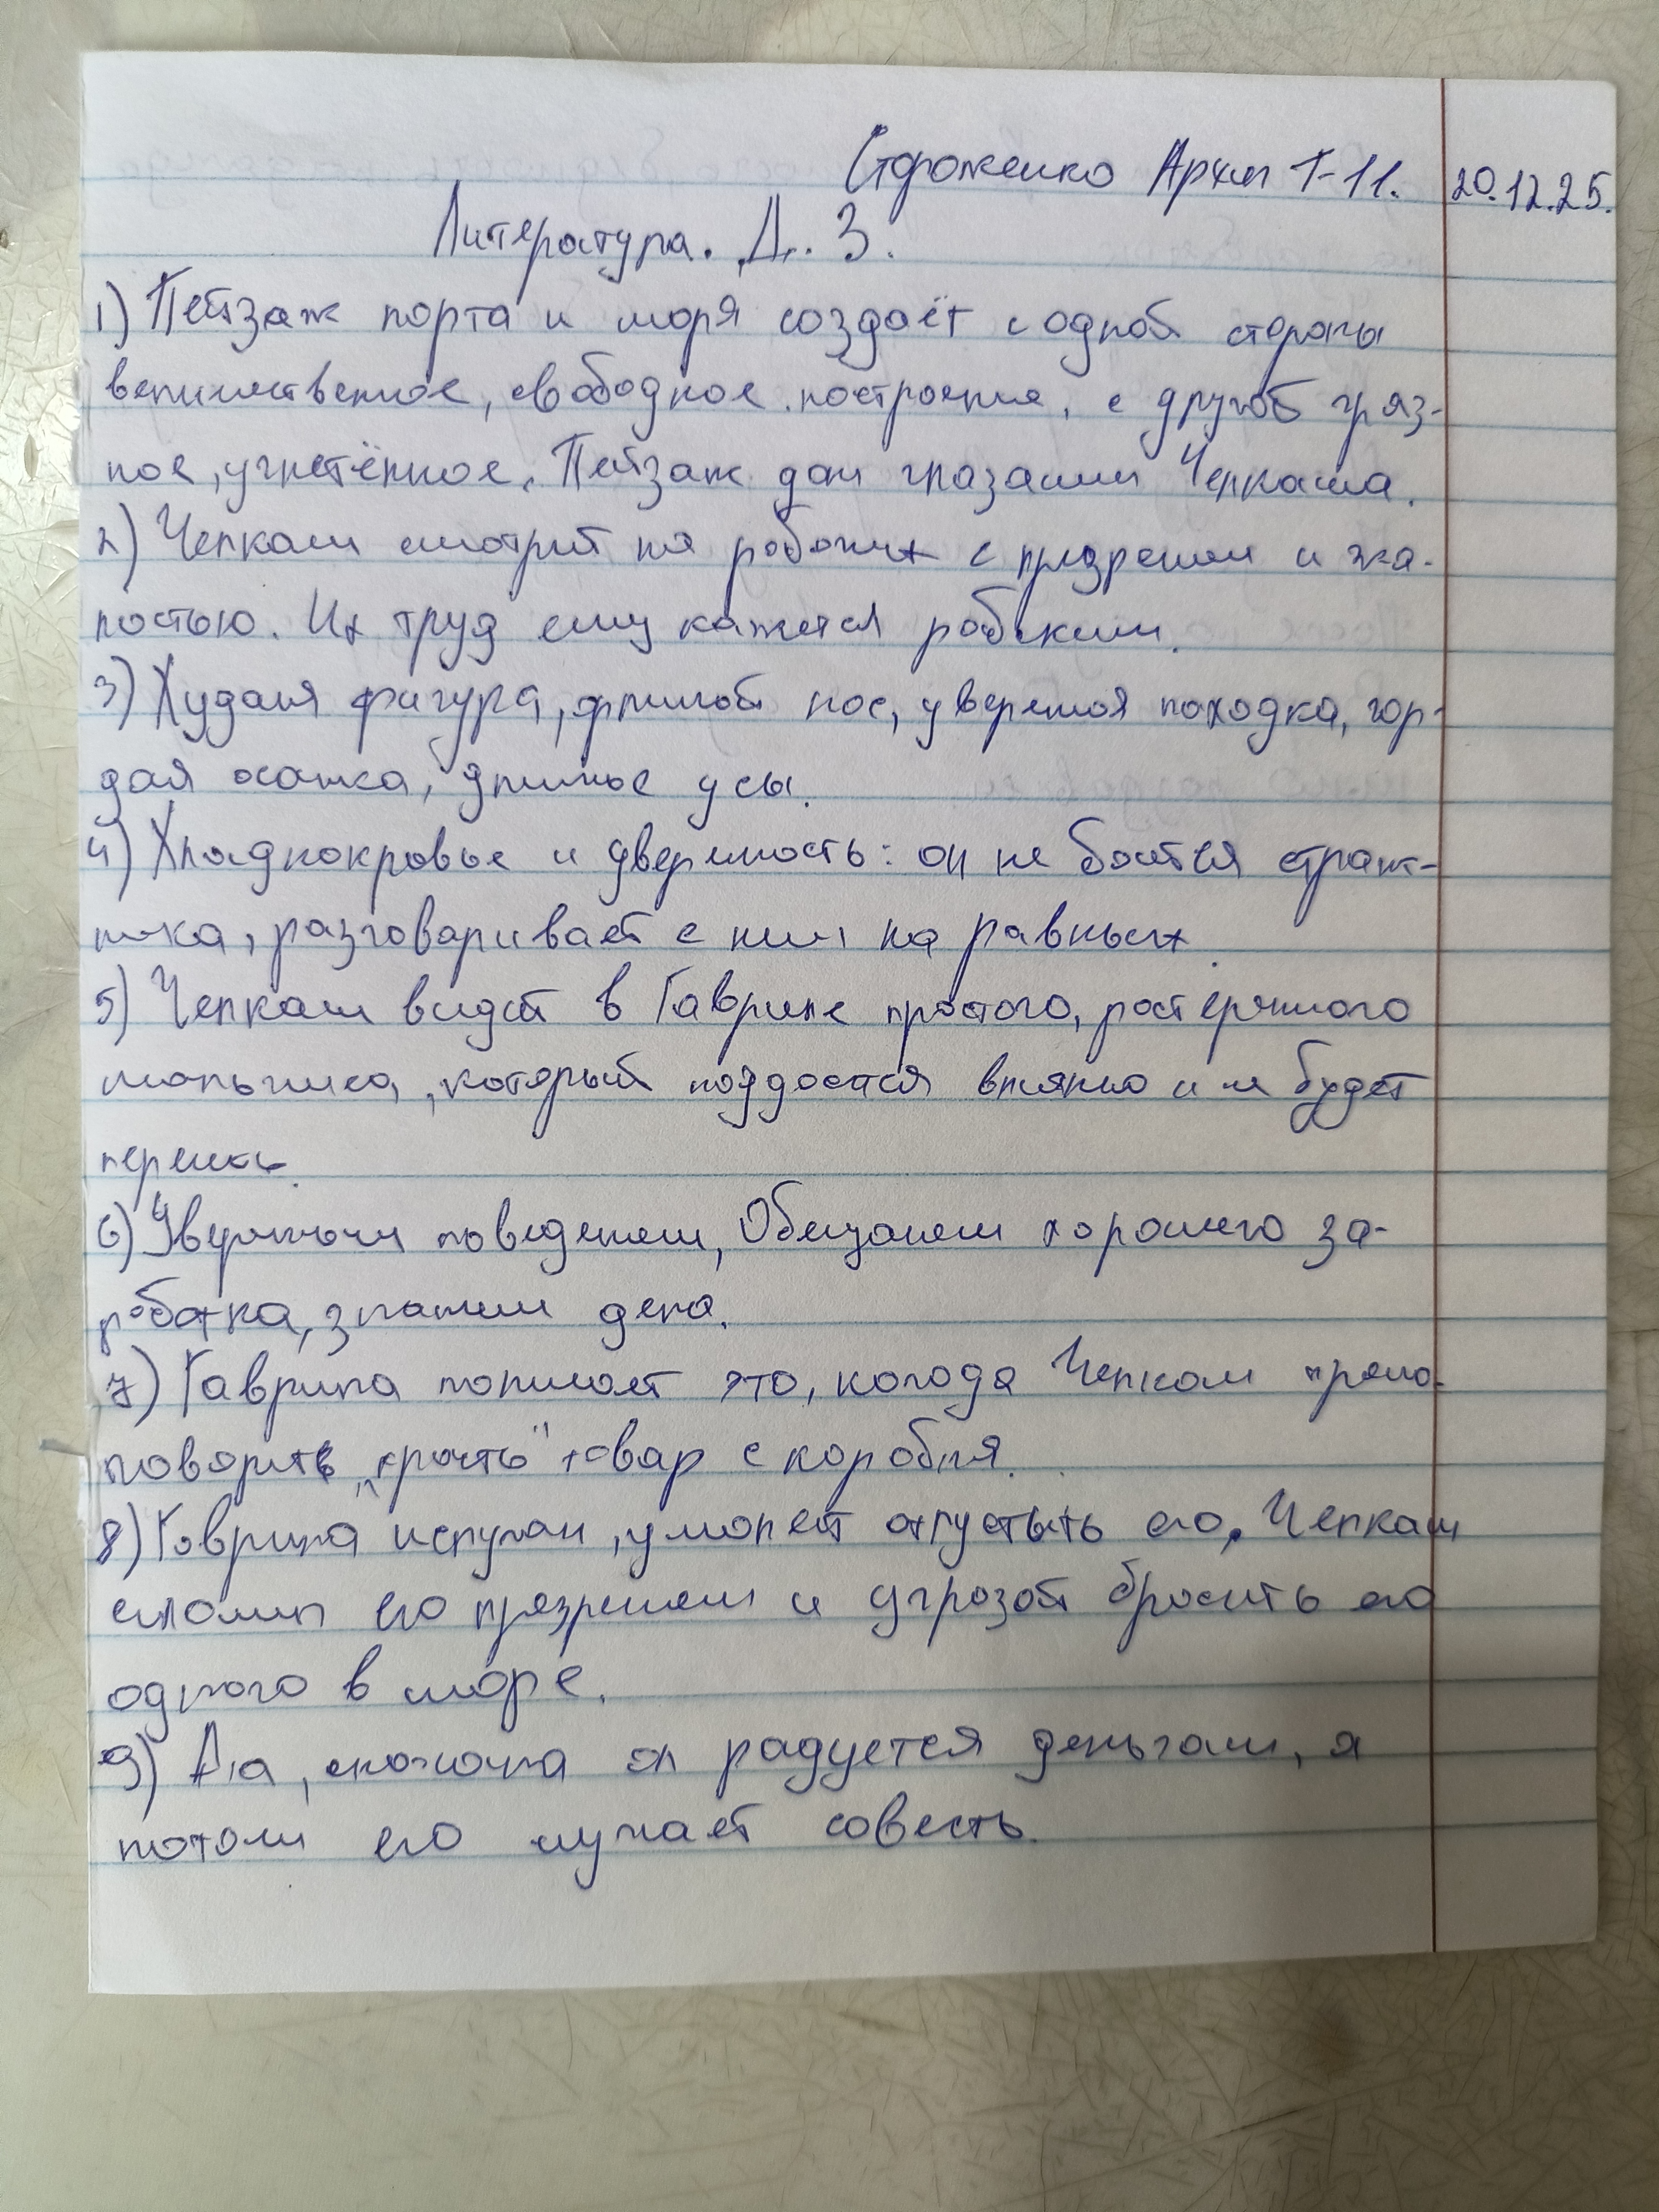 Стороженко Архип Т-11. 20.12.25.
Литература. Д. З.
1) Пейзаж порта и моря создаёт с одной стороны
величественное, свободное построение, с другой гряз-
ное, угнетённое. Пейзаж дан глазами Челкаша.
2) Челкаш смотрит на рабочих с призрением и жа-
лостью. Их труд ему кажется рабским.
3) Худая фигура, длиной нос, уверенная походка, гор-
дая осанка, длинные усы.
4) Хладнокровье и уверенность: он не боится страж-
ника, разговаривает с ним на равных.
5) Челкаш видит в Гавриле простого, растерянного
мальчика, который поддастся влянию и не будет
6) Уверенным поведением, Обещанием хорошего за-
работка, знанием дела.
7) Гаврила понимает это, когода Челкаш
товар с корабля.
8) Гаврила испуган, умоляет отпустыть его. Челкаш
сломил его презрением и угрозой бросить его
одного в море.
9) Да, сначала он радуется деньгам, а
потом его мучает совесть.